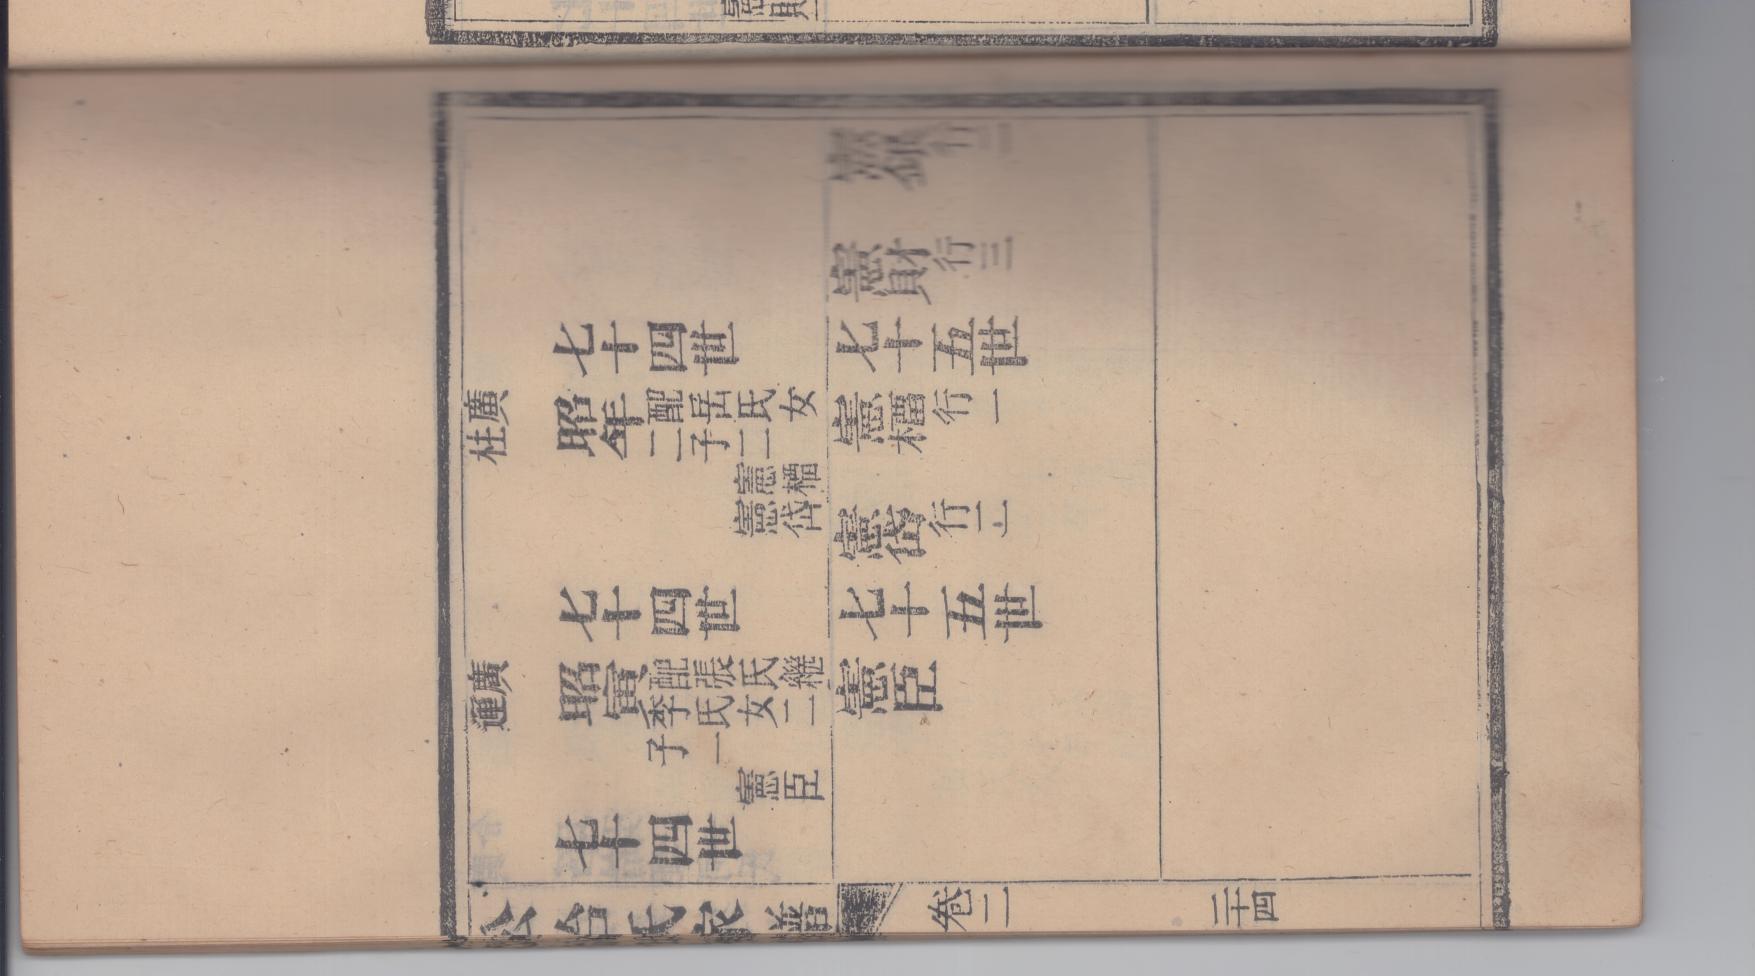 行二
憲財 行三
七十四世 七十五世
廣柱 昭年 配岳氏女
二子二
憲槽
憲岱
憲槽 行一
憲岱 行二
七十四世 七十五世
廣運 昭寅 配張氏繼
李氏女二
子一
憲臣
憲臣
七十四世
公冶氏家譜 卷二 二十四